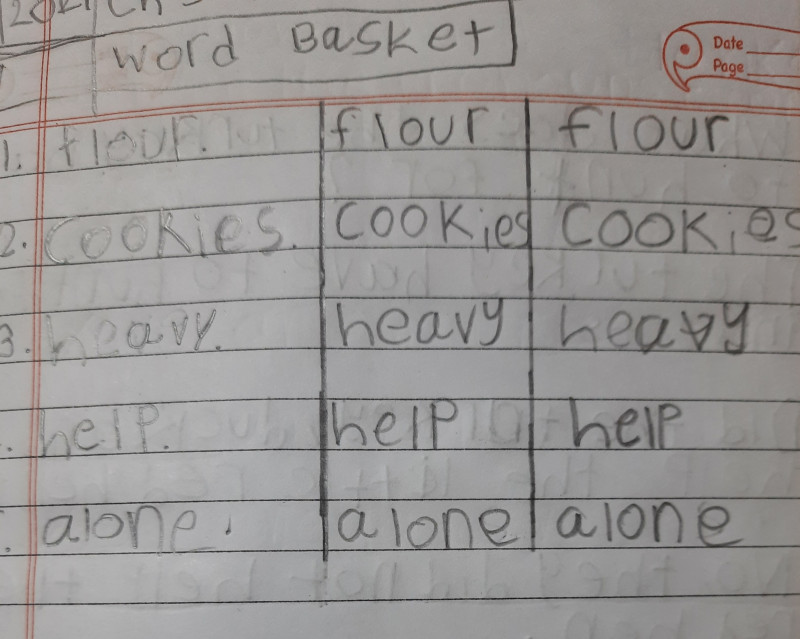 word Basket
Date
Page
1. flour. flour flour
2. cookies. cookies cookies
3. heavy. heavy heavy
. help. help help
. alone. alone alone